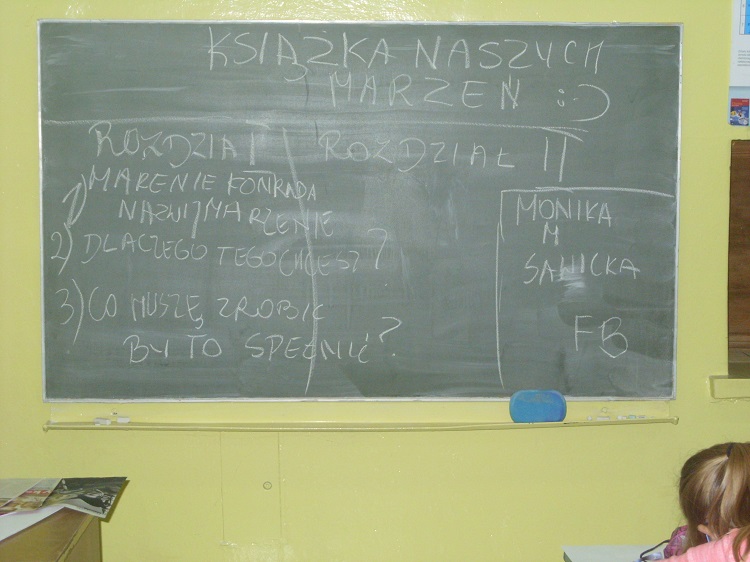 KSIĄŻKA NASZYCH
MARZEŃ :-)
ROZDZIAŁ I
1) MARENIE KONRADA
NAZWIJ MARZENIE
2) DLACZEGO TEGO CHCESZ?
3) CO MUSZĘ ZROBIĆ
BY TO SPEŁNIĆ?
ROZDZIAŁ II
MONIKA
M
SAWICKA
FB